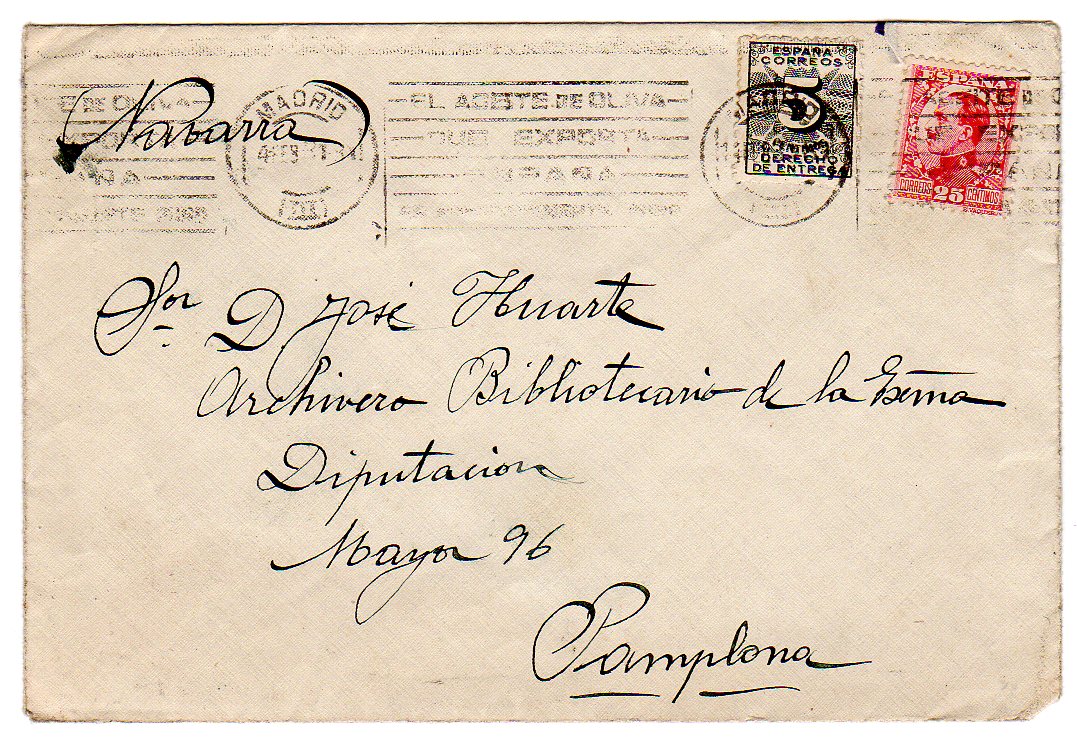 (Navarra)
MADRID
EL ACEITE DE OLIVA
QUE EXPORTA
ESPAÑA
ESPAÑA
CORREOS
5
DERECHO
DE ENTREGA
ESPAÑA
CORREOS 25 CENTIMOS
Sor D. José Huarte
Archivero Bibliotecario de la Exma
Diputacion
Mayor 96
Pamplona